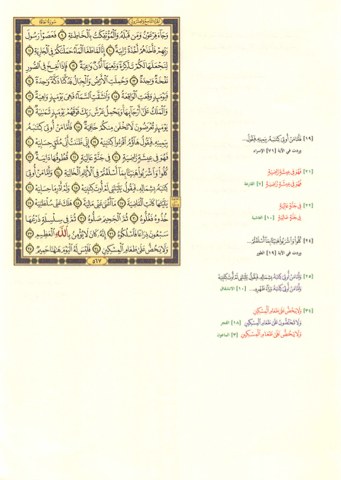 وَجَآءَ فِرْعَوْنُ وَمَن قَبْلَهُۥ وَٱلْمُؤْتَفِكَٰتُ بِٱلْخَاطِئَةِ ۝ فَعَصَوْا۟ رَسُولَ
رَبِّهِمْ فَأَخَذَهُمْ أَخْذَةً رَّابِيَةً ۝ إِنَّا لَمَّا طَغَا ٱلْمَآءُ حَمَلْنَٰكُمْ فِى ٱلْجَارِيَةِ ۝
لِنَجْعَلَهَا لَكُمْ تَذْكِرَةً وَتَعِيَهَآ أُذُنٌ وَٰعِيَةٌ ۝ فَإِذَا نُفِخَ فِى ٱلصُّورِ
نَفْخَةٌ وَٰحِدَةٌ ۝ وَحُمِلَتِ ٱلْأَرْضُ وَٱلْجِبَالُ فَدُكَّتَا دَكَّةً وَٰحِدَةً ۝
فَيَوْمَئِذٍ وَقَعَتِ ٱلْوَاقِعَةُ ۝ وَٱنشَقَّتِ ٱلسَّمَآءُ فَهِىَ يَوْمَئِذٍ وَاهِيَةٌ ۝
وَٱلْمَلَكُ عَلَىٰٓ أَرْجَآئِهَا وَيَحْمِلُ عَرْشَ رَبِّكَ فَوْقَهُمْ يَوْمَئِذٍ ثَمَٰنِيَةٌ ۝
يَوْمَئِذٍ تُعْرَضُونَ لَا تَخْفَىٰ مِنكُمْ خَافِيَةٌ ۝ فَأَمَّا مَنْ أُوتِىَ كِتَٰبَهُۥ
بِيَمِينِهِۦ فَيَقُولُ هَآؤُمُ ٱقْرَءُوا۟ كِتَٰبِيَهْ ۝ إِنِّى ظَنَنتُ أَنِّى مُلَٰقٍ حِسَابِيَهْ ۝
فَهُوَ فِى عِيشَةٍ رَّاضِيَةٍ ۝ فِى جَنَّةٍ عَالِيَةٍ ۝ قُطُوفُهَا دَانِيَةٌ ۝
كُلُوا۟ وَٱشْرَبُوا۟ هَنِيٓـًٔۢا بِمَآ أَسْلَفْتُمْ فِى ٱلْأَيَّامِ ٱلْخَالِيَةِ ۝ وَأَمَّا مَنْ أُوتِىَ
كِتَٰبَهُۥ بِشِمَالِهِۦ فَيَقُولُ يَٰلَيْتَنِى لَمْ أُوتَ كِتَٰبِيَهْ ۝ وَلَمْ أَدْرِ مَا حِسَابِيَهْ ۝
يَٰلَيْتَهَا كَانَتِ ٱلْقَاضِيَةَ ۝ مَآ أَغْنَىٰ عَنِّى مَالِيَهْ ۝ هَلَكَ عَنِّى سُلْطَٰنِيَهْ ۝
خُذُوهُ فَغُلُّوهُ ۝ ثُمَّ ٱلْجَحِيمَ صَلُّوهُ ۝ ثُمَّ فِى سِلْسِلَةٍ ذَرْعُهَا
سَبْعُونَ ذِرَاعًا فَٱسْلُكُوهُ ۝ إِنَّهُۥ كَانَ لَا يُؤْمِنُ بِٱللَّهِ ٱلْعَظِيمِ ۝
وَلَا يَحُضُّ عَلَىٰ طَعَامِ ٱلْمِسْكِينِ ۝ فَلَيْسَ لَهُ ٱلْيَوْمَ هَٰهُنَا حَمِيمٌ ۝
٥٦٧
[١٩] فَأَمَّا مَنْ أُوتِىَ كِتَٰبَهُۥ بِيَمِينِهِۦ فَيَقُولُ...
وردت في الآية [٧١] الإسراء
[٢١] فَهُوَ فِى عِيشَةٍ رَّاضِيَةٍ
فَهُوَ فِى عِيشَةٍ رَّاضِيَةٍ [٧] القارعة
[٢٢] فِى جَنَّةٍ عَالِيَةٍ
فِى جَنَّةٍ عَالِيَةٍ [١٠] الغاشية
[٢٤] كُلُوا۟ وَٱشْرَبُوا۟ هَنِيٓـًٔۢا بِمَآ أَسْلَفْتُمْ...
وردت في الآية [١٩] الطور
[٢٥] وَأَمَّا مَنْ أُوتِىَ كِتَٰبَهُۥ بِشِمَالِهِۦ فَيَقُولُ يَٰلَيْتَنِى لَمْ أُوتَ كِتَٰبِيَهْ
وَأَمَّا مَنْ أُوتِىَ كِتَٰبَهُۥ وَرَآءَ ظَهْرِهِۦ... [١٠] الانشقاق
[٣٤] وَلَا يَحُضُّ عَلَىٰ طَعَامِ ٱلْمِسْكِينِ
وَلَا تَحَٰٓضُّونَ عَلَىٰ طَعَامِ ٱلْمِسْكِينِ [١٨] الفجر
وَلَا يَحُضُّ عَلَىٰ طَعَامِ ٱلْمِسْكِينِ [٣] الماعون